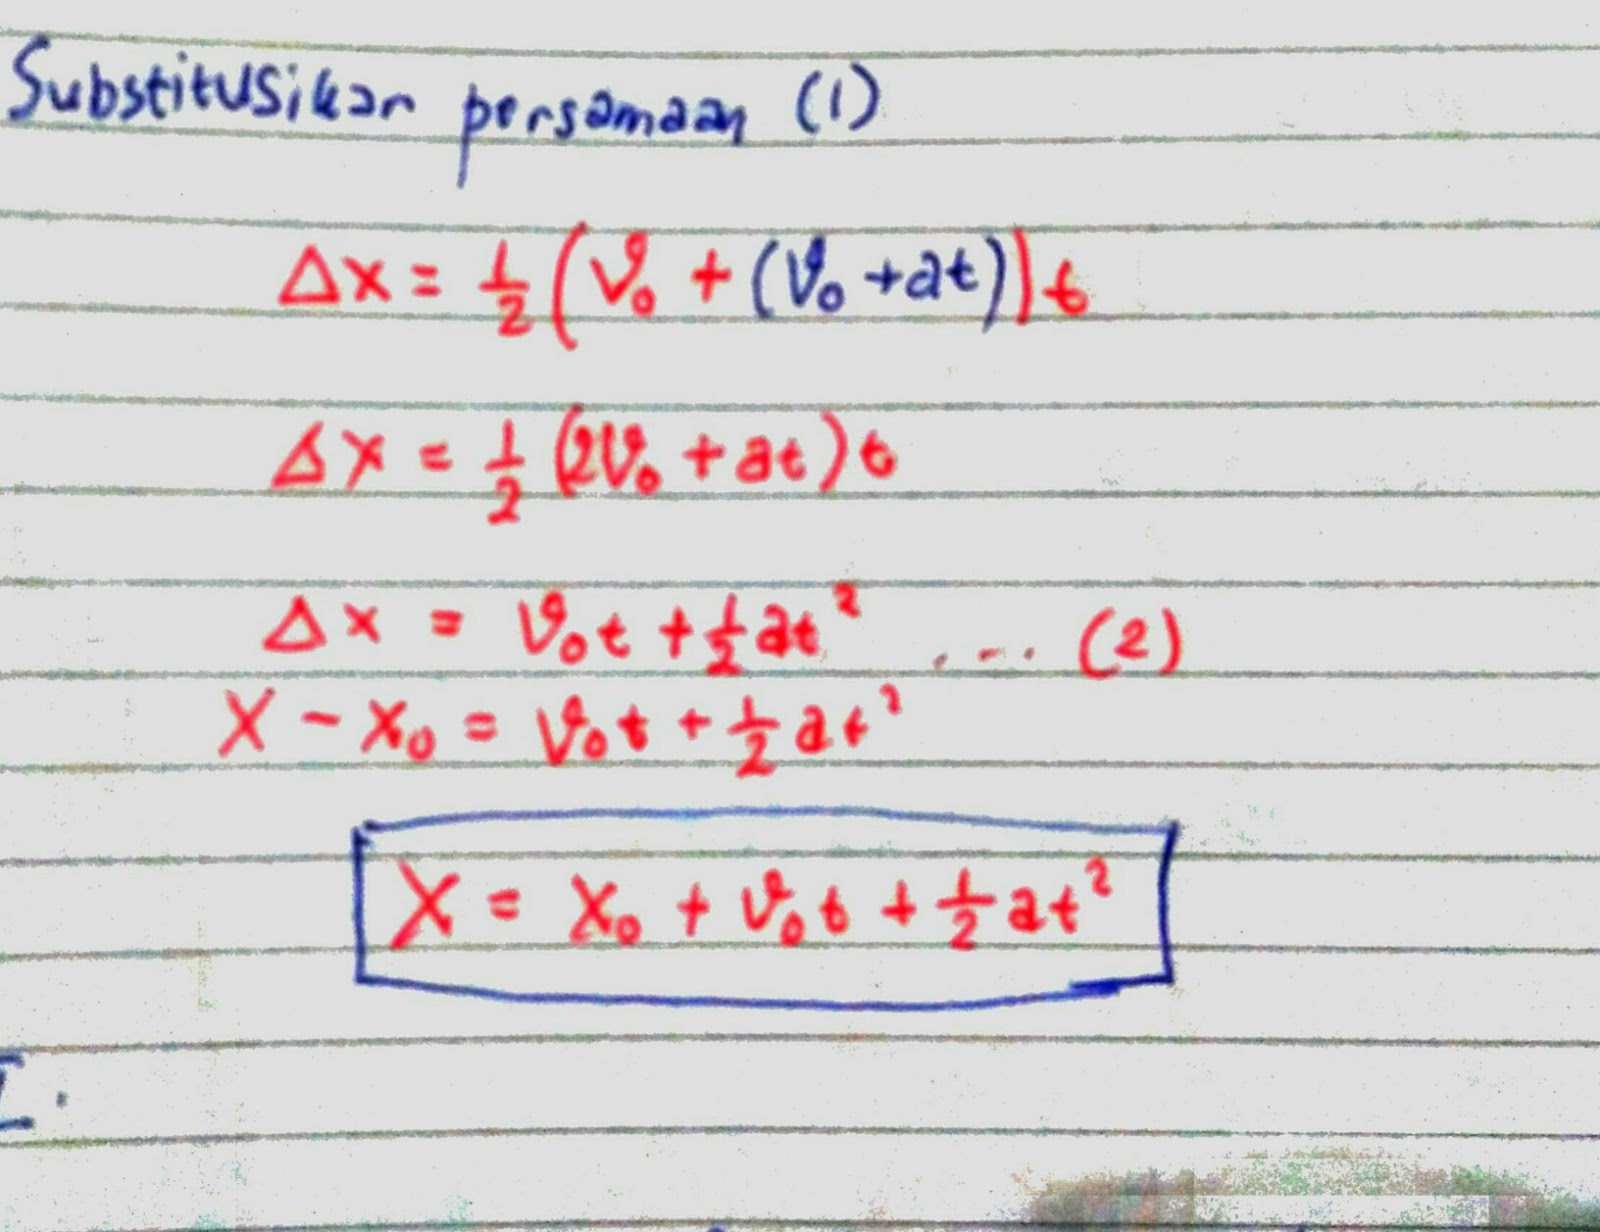 Substitusikan persamaan (1)
Δx = 1/2 (v₀ + (v₀ + at)) t
Δx = 1/2 (2v₀ + at) t
Δx = v₀t + 1/2 at² .... (2)
x - x₀ = v₀t + 1/2 at²
x = x₀ + v₀t + 1/2 at²